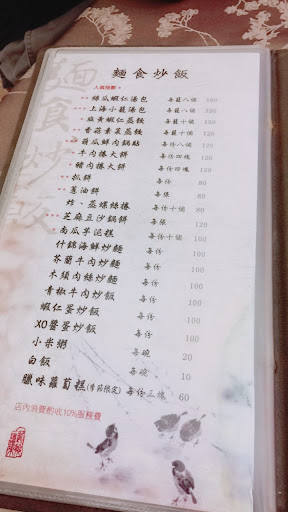 麵食炒飯
麵食炒飯
人氣推薦
絲瓜蝦仁湯包 每籠八個 180
上海小籠湯包 每籠八個
韭黃蝦仁蒸餃 每籠十個
香菇素菜蒸餃 每籠十個 120
翡瓜鮮肉鍋貼 每份八個 120
牛肉捲大餅 每份四塊
豬肉捲大餅 每份四塊
扒餅 每份 80
蔥油餅 每份 80
炸、蒸螺絲捲 每份十個 80
芝麻豆沙鍋餅 每張 120
南瓜芋泥糕 每份十個 100
什錦海鮮炒麵 每份 100
芥蘭牛肉炒麵 每份 100
木須肉絲炒麵 每份 100
青椒牛肉炒飯 每份 100
蝦仁蛋炒飯 每份 100
XO醬蛋炒飯 每份 100
小米粥 每碗 20
白飯 每碗 10
臘味蘿蔔糕(季節限定) 每份三塊 60
店內消費酌收10%服務費